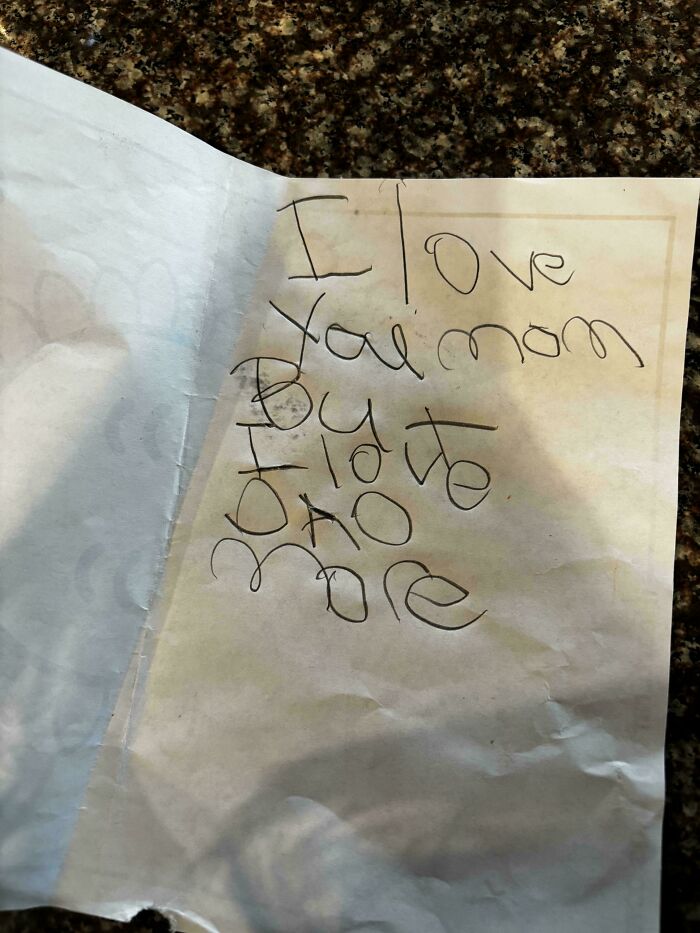 I love
You mom
But
I love
DAD
more